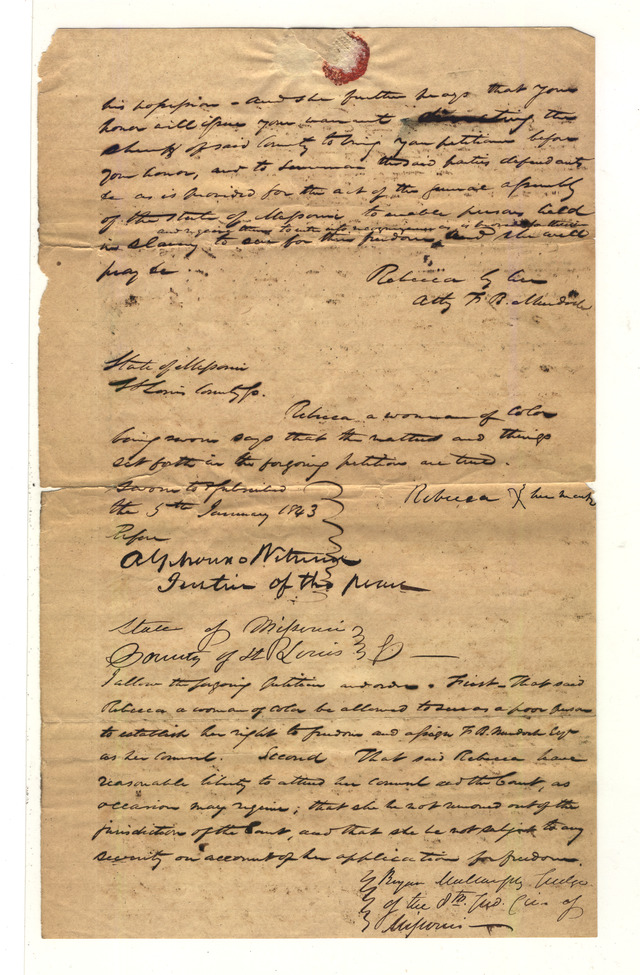 his possession - And she further prays that your
honor will issue your warrant directing the
Sheriff of said County to bring your petitioner before
your honor, and to summon the said parties defendants
&c as is provided for the act of the general assembly
of the State of Missouri to enable persons held
and requiring them to enter into recognizance as is provided for
in slavery to sue for their freedom, and she will
pray &c.
Rebecca by her
Atty F. B. Murdoch
State of Missouri
St Louis County Ss.
Rebecca a woman of Color
being sworn says that the matters and things
set forth in the forgoing petition are true.
Sworn to & subscribed
the 5th January 1843
Rebecca X her mark
Before
Justice of the peace
State of Missouri
County of St Louis
I allow the forgoing Petition and order. First - That said
Rebecca a woman of Color be allowed to sue as a poor person
to establish her right to freedom and assign F. B. Murdoch Esqr
as her counsel. Second That said Rebecca have
reasonable liberty to attend her counsel and the Court, as
occasion may require; that she be not removed out of the
jurisdiction of the Court, and that she be not subject to any
severity on account of her application for freedom.
Bryan Mullanphy Judge
of the 8th Jud. Cir. of
Missouri